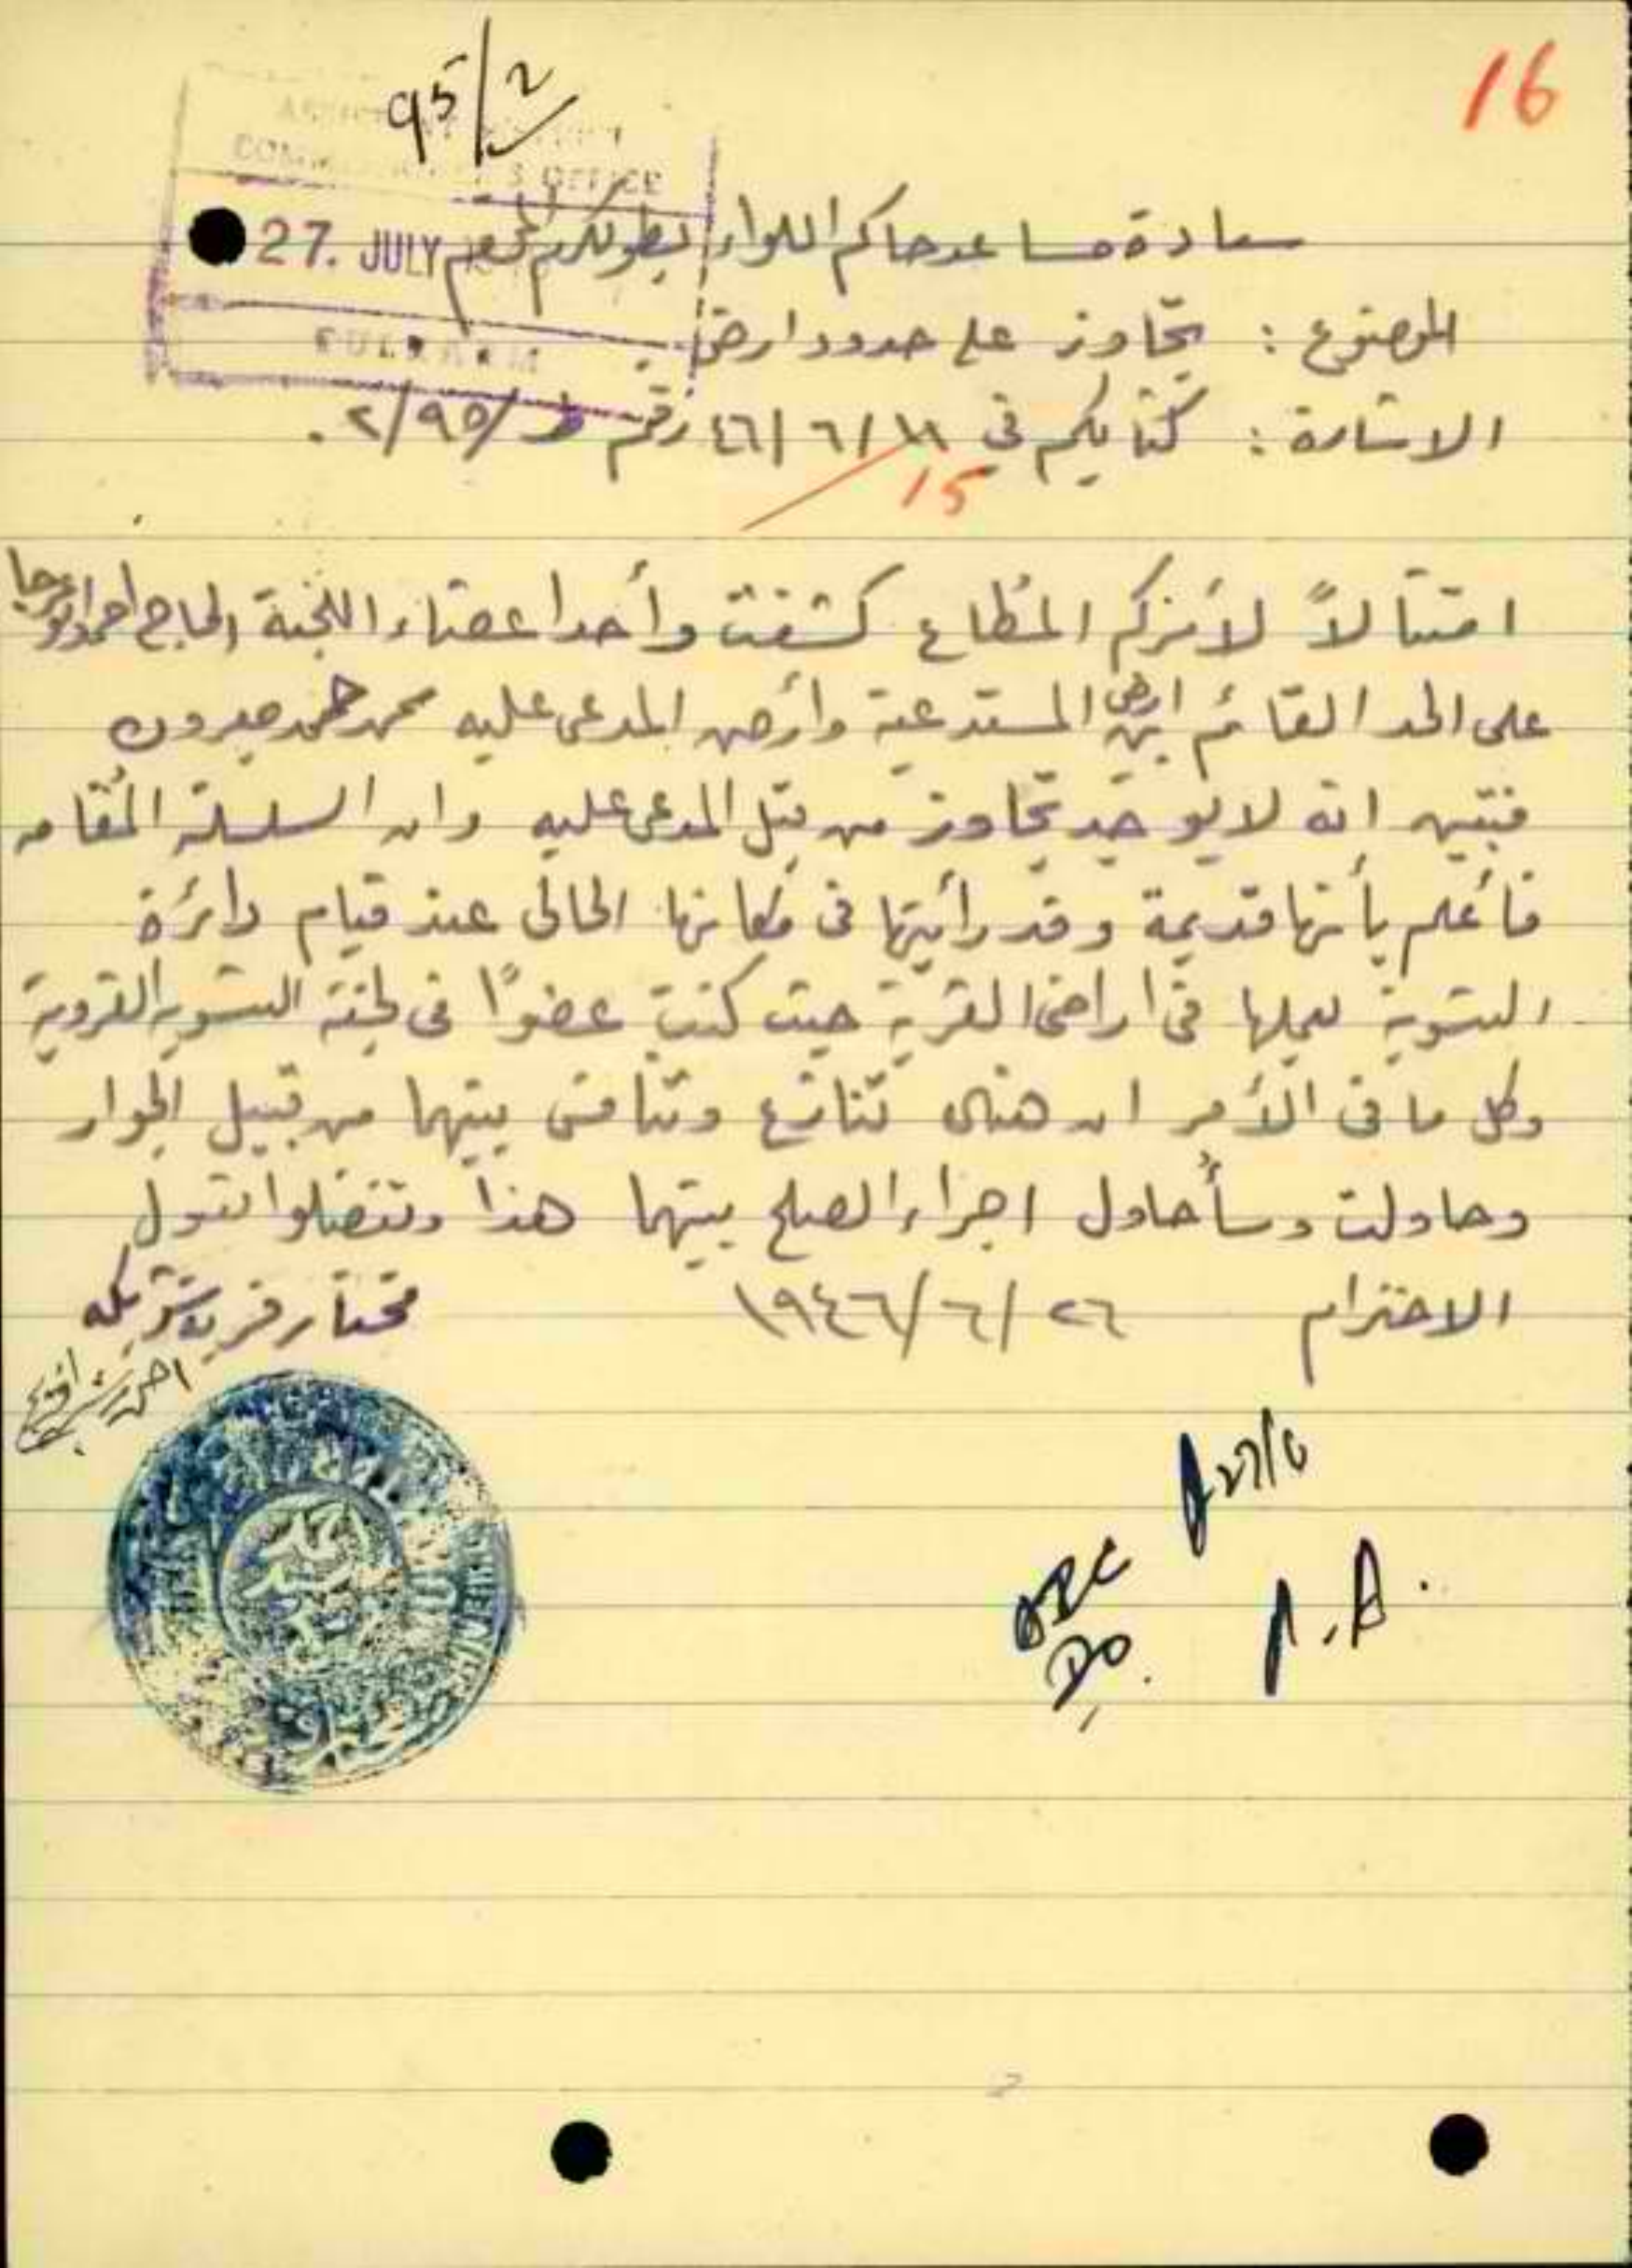 16
95/2
COMMISSIONER'S OFFICE
27. JULY
TULKARM
سعادة مساعد حاكم اللواء بطولكرم الافخم
الموضوع : تجاوز على حدود ارض
الاشارة : كتابكم في ٤٦/٦/١٨ رقم ط/٢/٩٥ .
15
امتثالاً لأمركم المُطاع كشفت وأحد اعضاء اللجنة الحاج احمد
على الحد القائم بين ارض المستدعية وأرض المدعى عليه محمد حمد
فتبين انه لا يوجد تجاوز من قبل المدعى عليه وان السلسلة المُقامه
فأعلم بأنها قديمة وقد رأيتها في مكانها الحالى عند قيام دائرة
التسوية بعملها في اراضي القرية حيث كنت عضوًا في لجنة التسوية القروية
وكل ما في الأمر ان هناك تنازع وتنافس بينهما من قبيل الجوار
وحاولت وسأحاول اجراء الصلح بينهما هذا وتفضلوا بقبول
الاحترام ١٩٤٦/٦/٢٦ مختار قرية شويكه
P.A.
D.O.